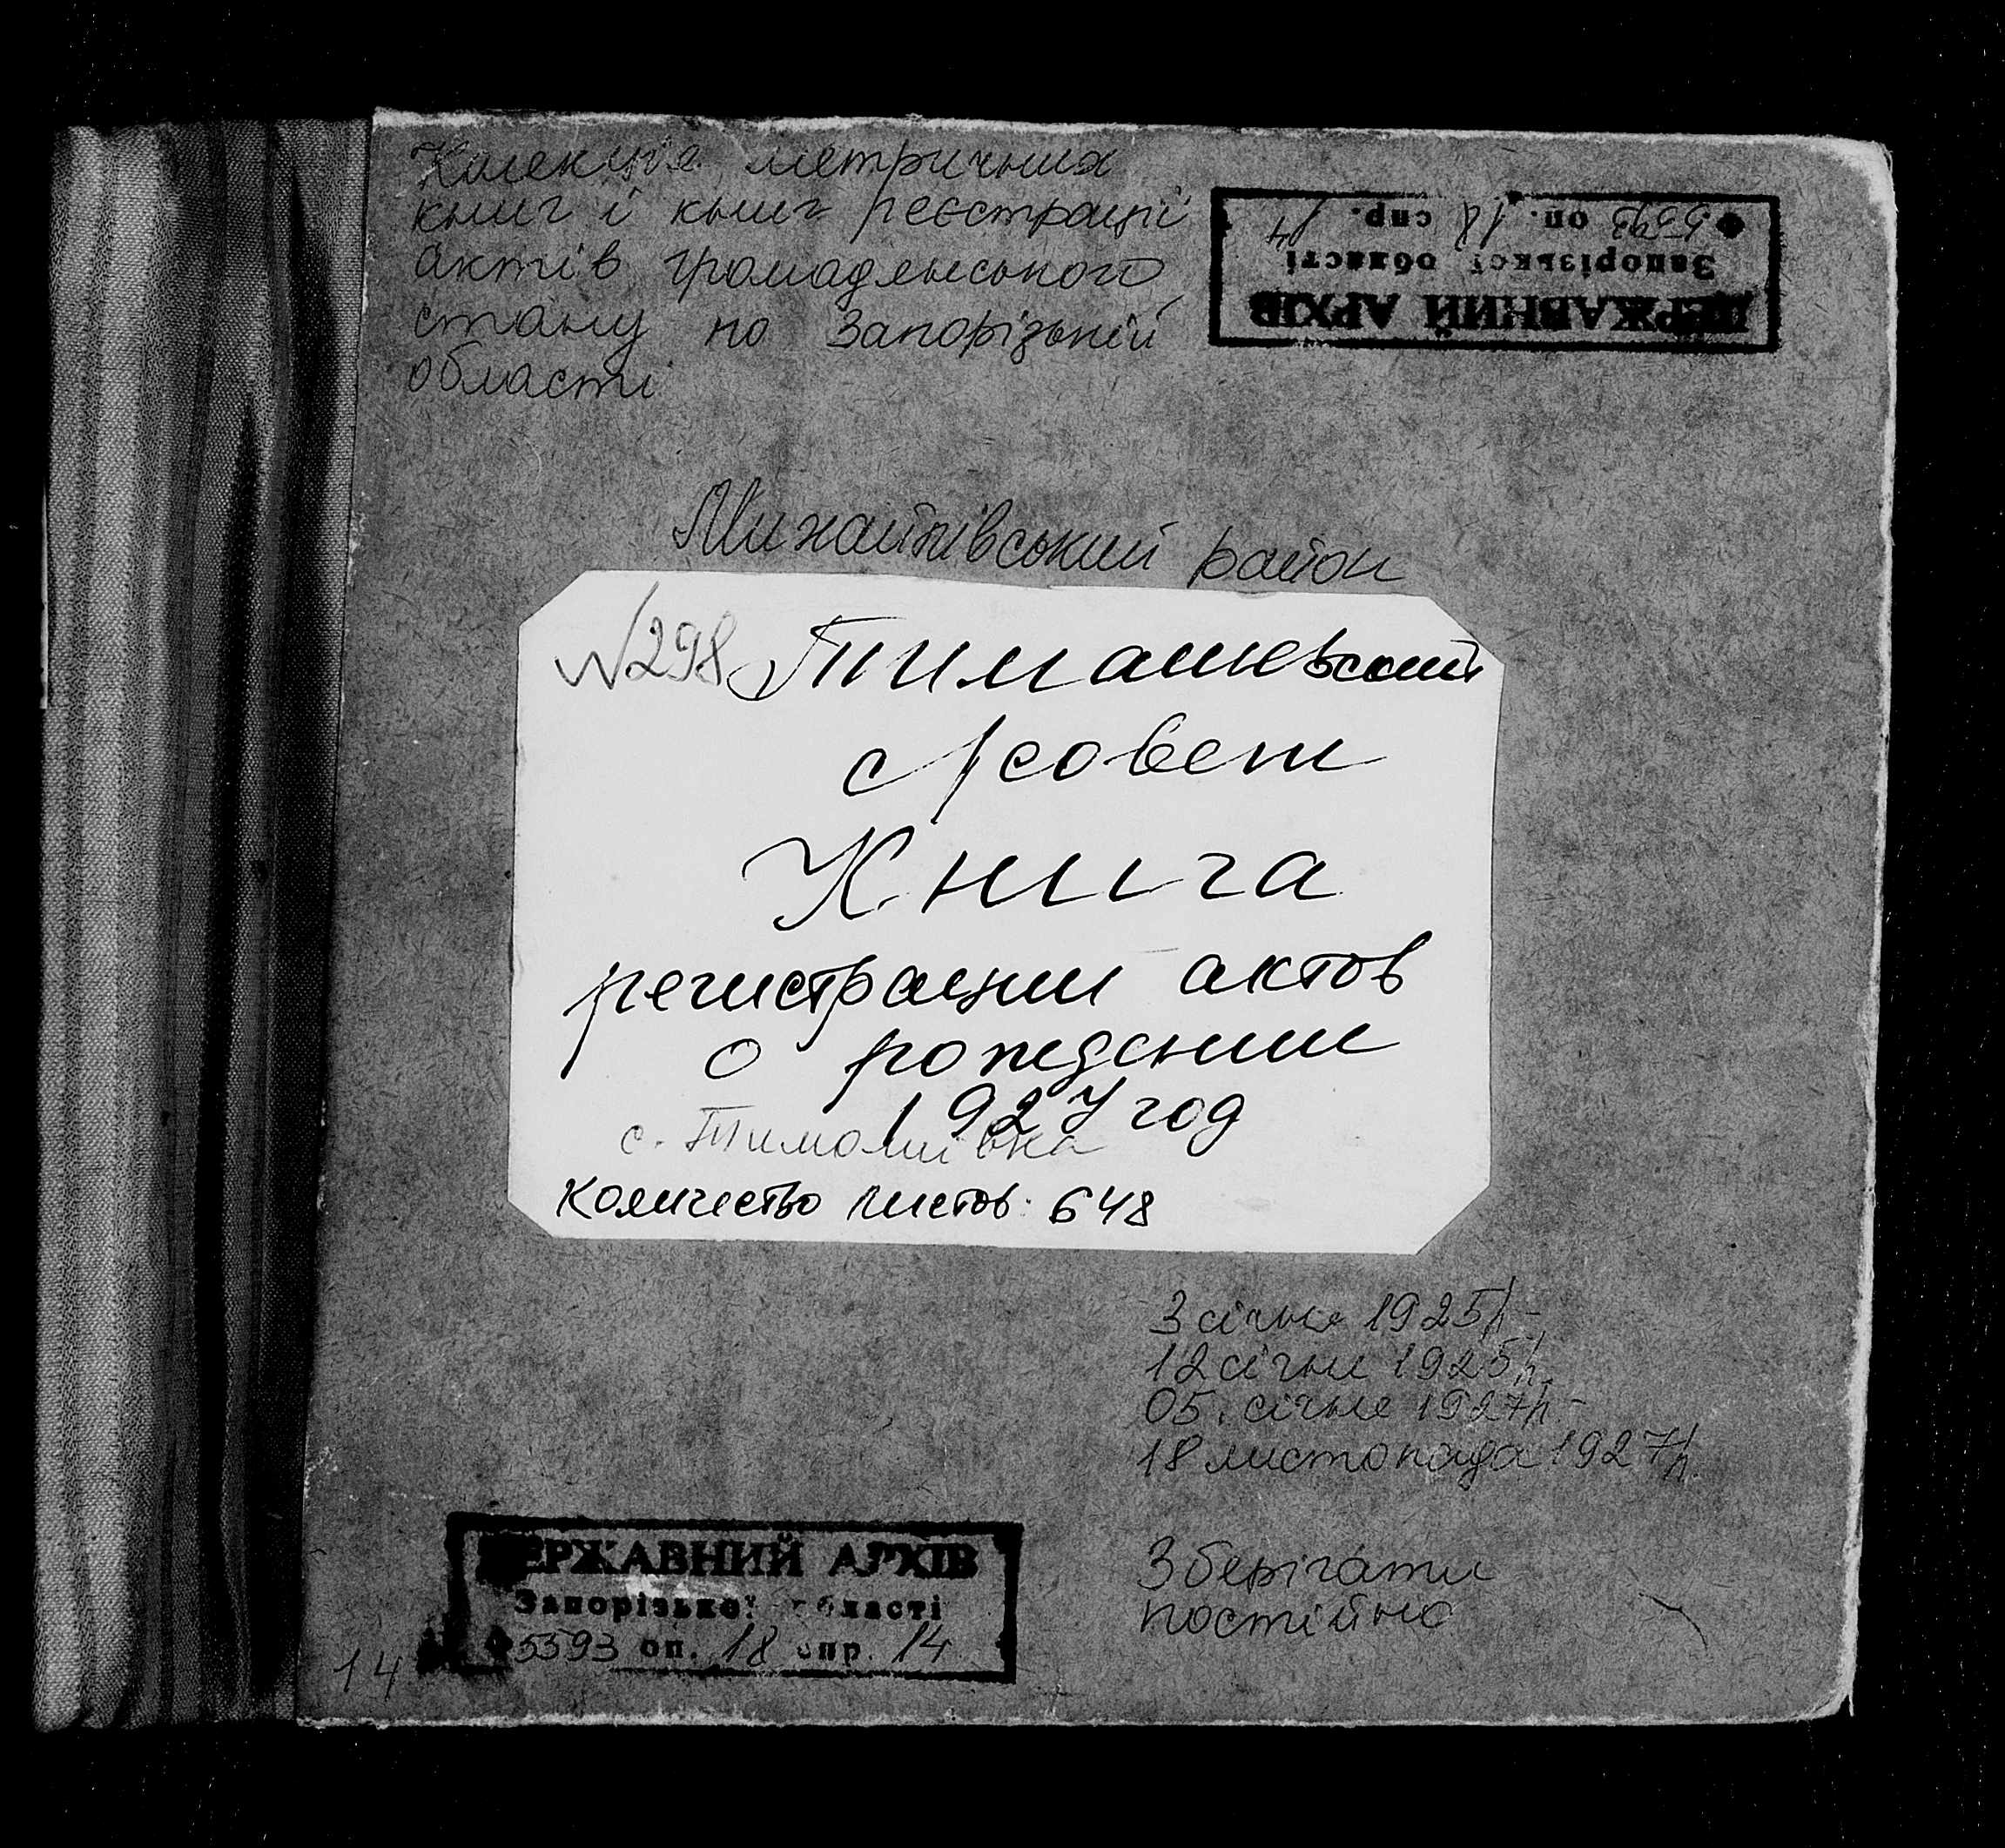 Колекція метричних
книг і книг реєстрації
актів громадянського
стану по Запорізькій
області
ДЕРЖАВНИЙ АРХІВ
Запорізької області
Ф.5593 оп. 18 спр. 14
Михайлівський район
№298 Тимашевский
с/совет
Книга
регистрации актов
о рождении
1927 год
с. Тимошівка
Количество листов: 648
3 січня 1925р-
12 січня 1925р.
05. січня 1927р.-
18 листопада 1927р.
Зберігати
постійно
ДЕРЖАВНИЙ АРХІВ
Запорізької області
Ф5593 оп. 18 спр. 14
14